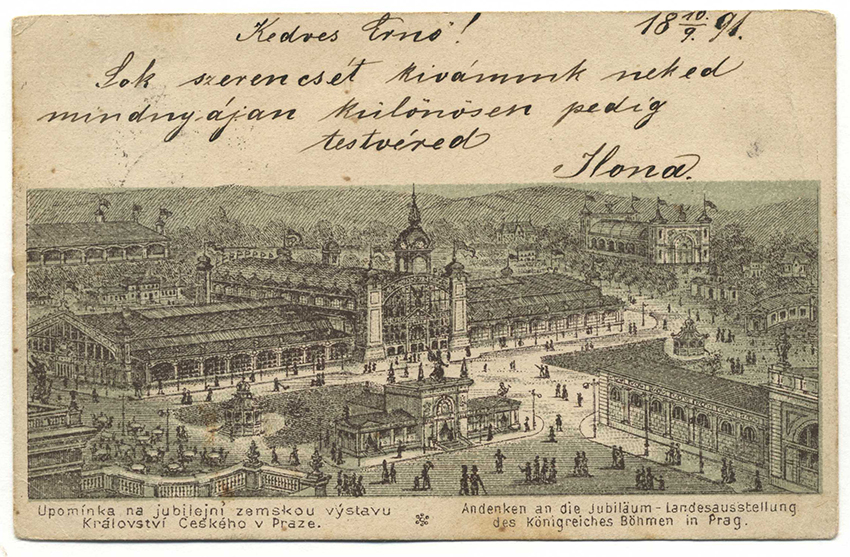 Kedves Ernő!
18 10/9. 91.
Sok szerencsét kivánunk neked
mindnyájan különösen pedig
testvéred
Ilona.
Upomínka na jubilejní zemskou výstavu
Království Českého v Praze.
Andenken an die Jubiläum-Landesausstellung
des Königreiches Böhmen in Prag.